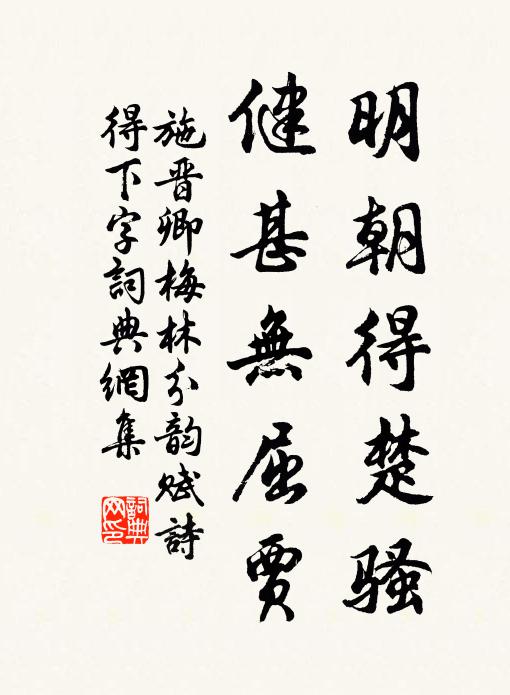 明朝得楚骚
健甚無屈賈
施晋卿梅林分韵赋詩
得下字詞典網集
詞典網印